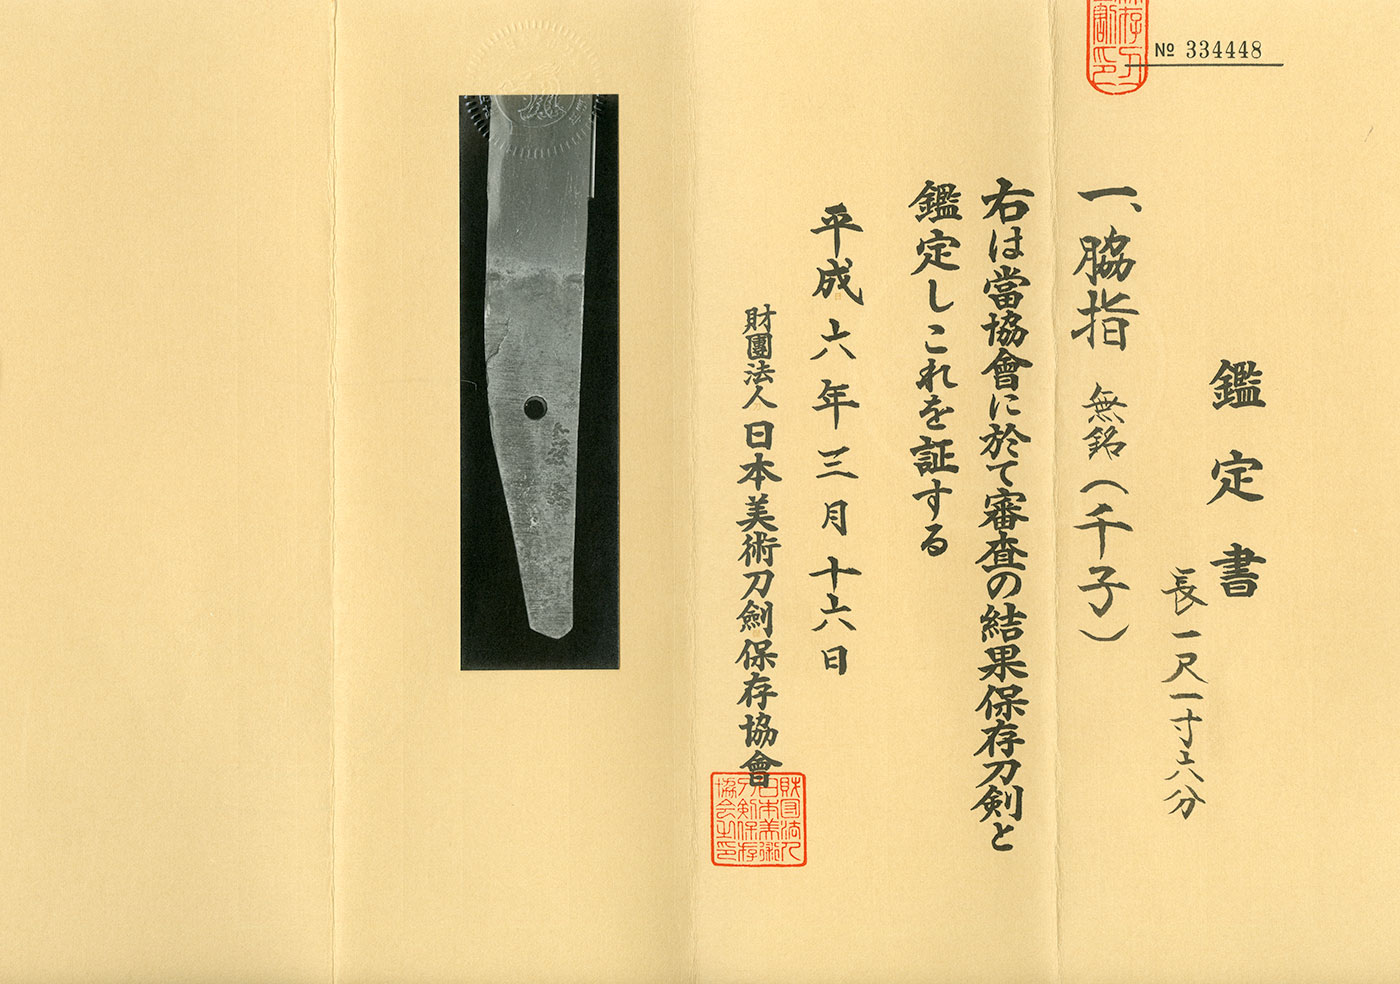 № 334448
鑑定書
長一尺一寸六分
一、脇指 無銘(千子)
右は當協會に於て審査の結果保存刀剣と
鑑定しこれを証する
平成六年三月十六日
財團法人日本美術刀劍保存協會
財団法人
日本美術
刀剣保存
協会之印